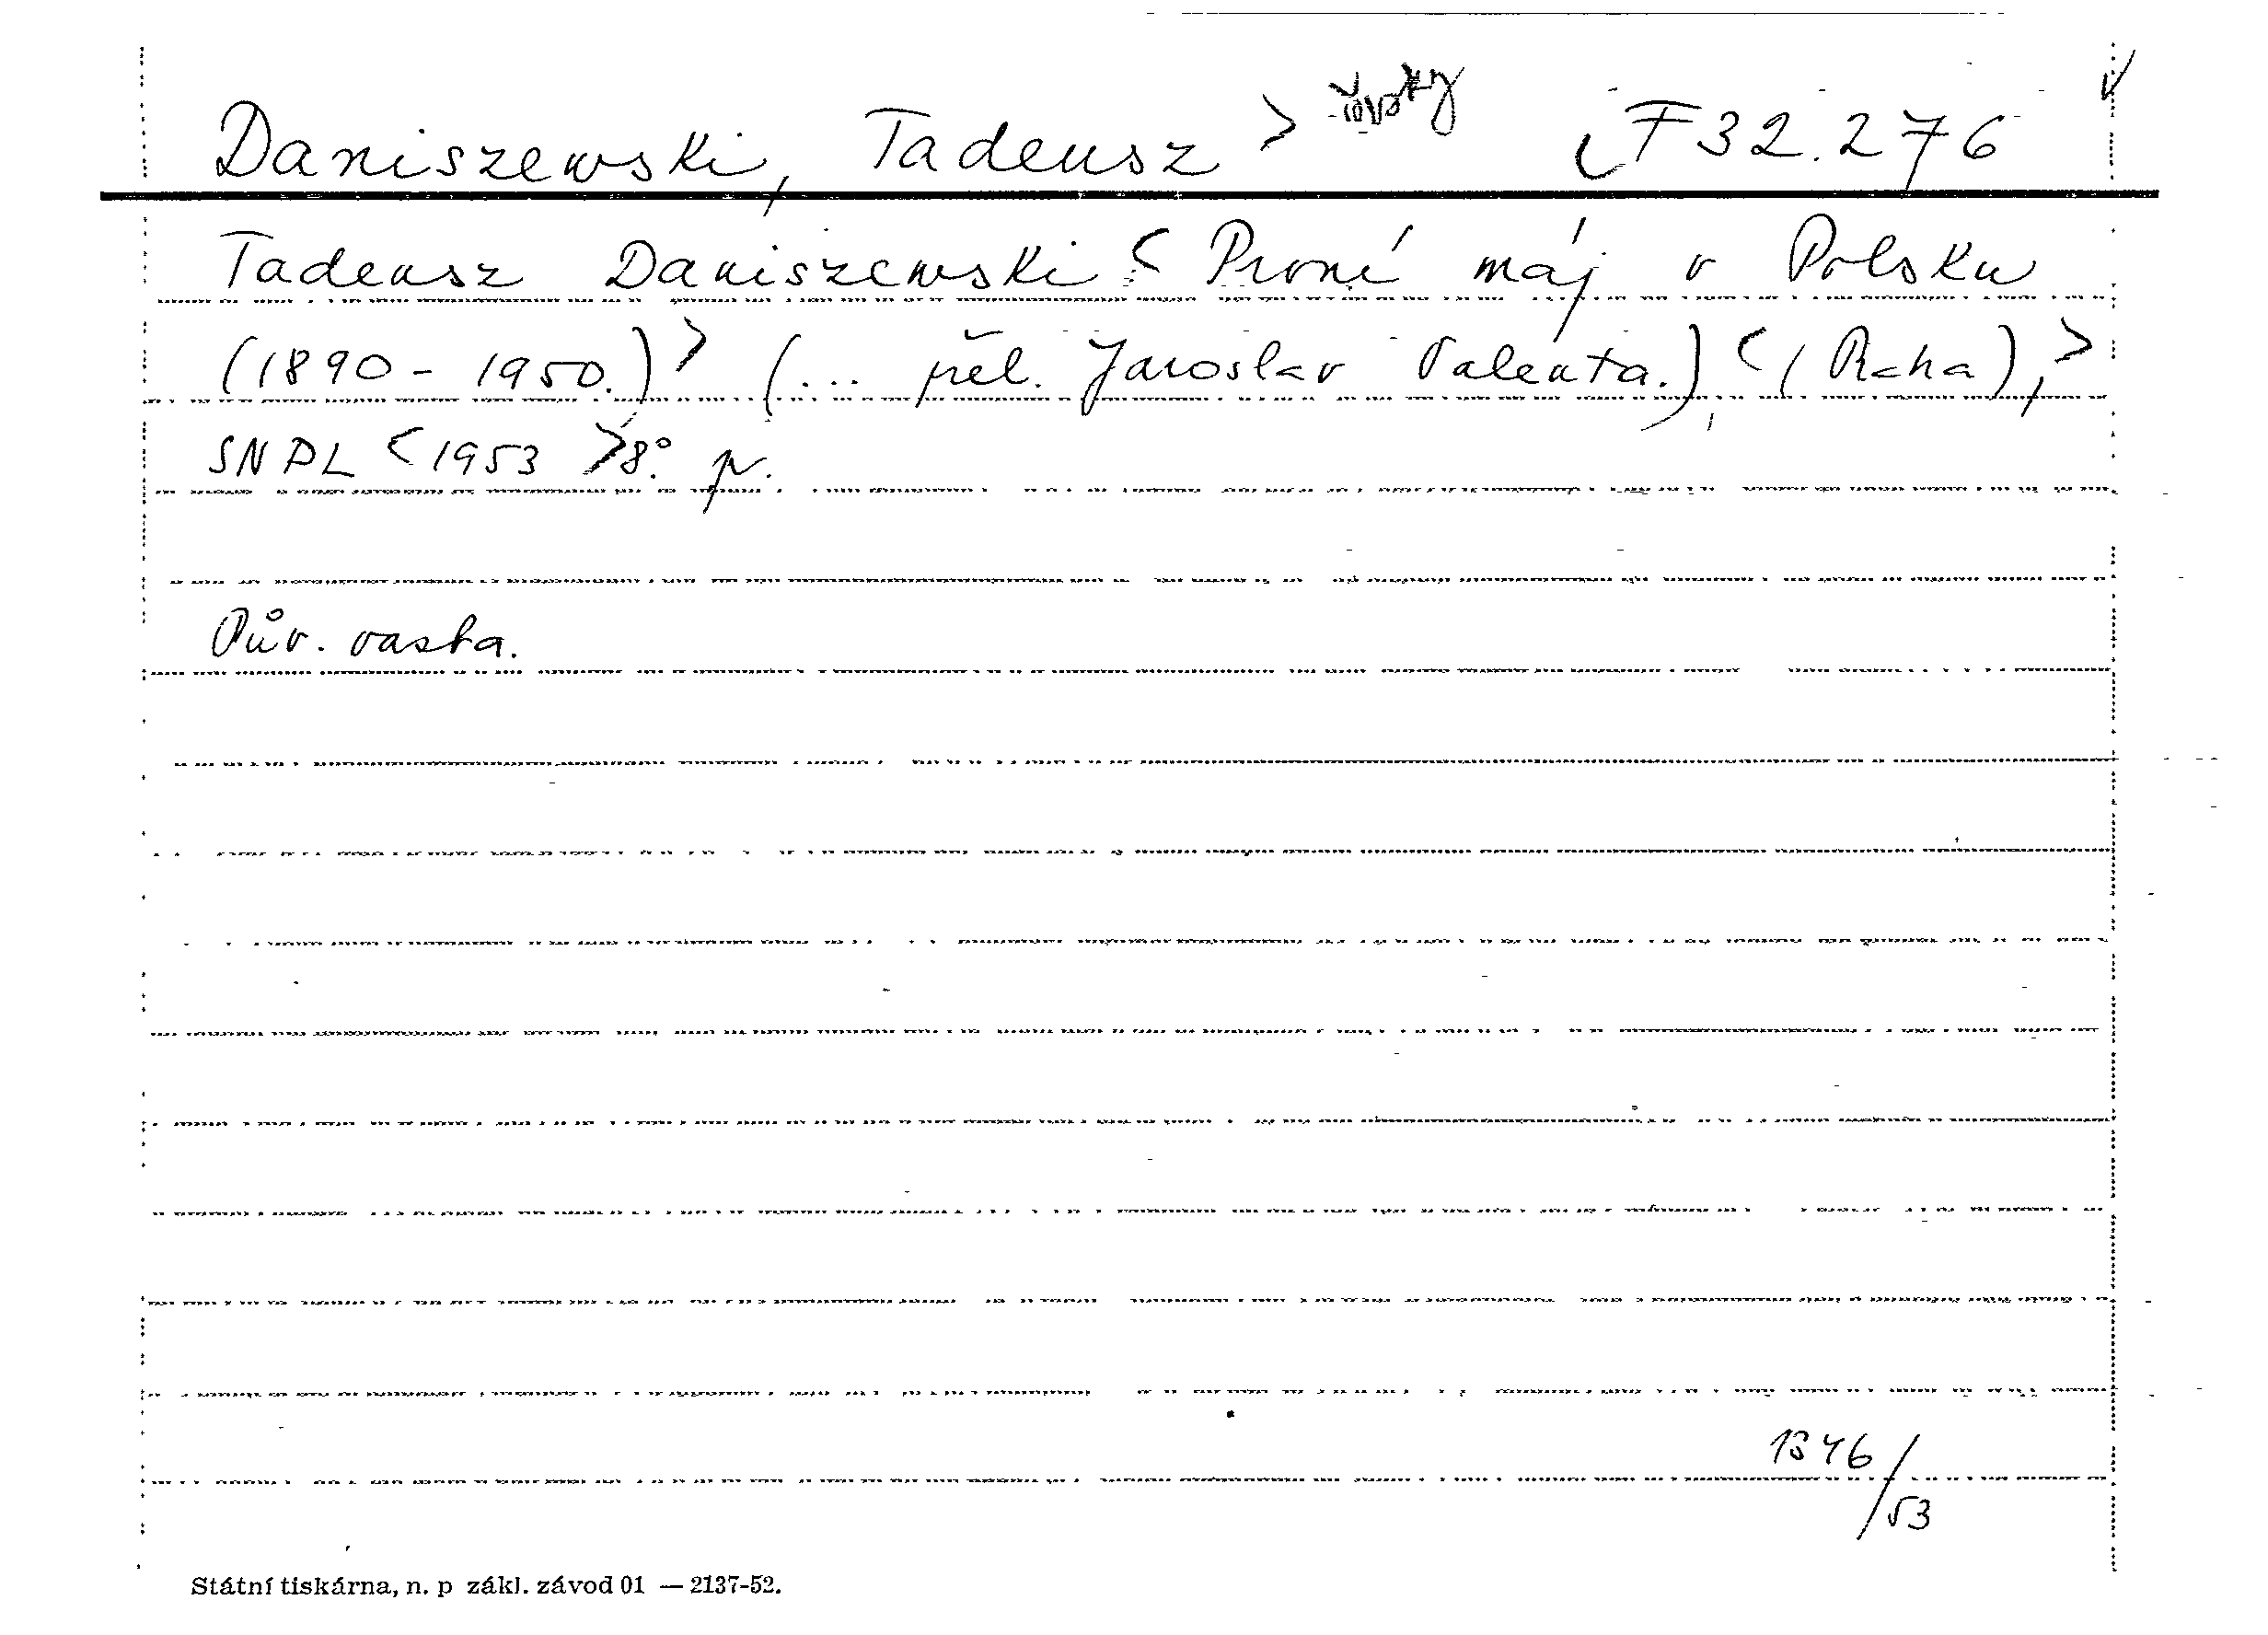 Daniszewski, Tadeusz > F 32.276
Tadeusz Daniszewski < První máj v Polsku
(1890 - 1950.) > (... přel. Jaroslav Valenta.) < (Praha), >
SNPL < 1953 > 8°. p.
Pův. vazba.
1346/53
Státní tiskárna, n. p zákl. závod 01 — 2137-52.